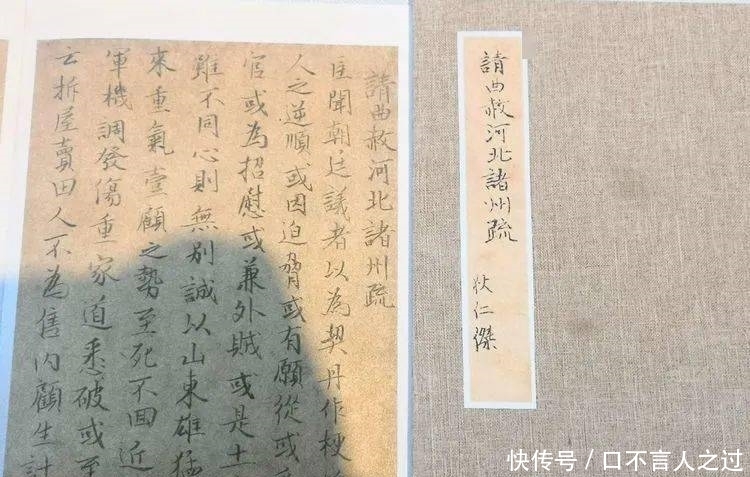 請曲赦河北諸州疏
臣聞朝廷議者以為契丹作梗
人之逆順或因迫脅或有願從或
官或為招慰或兼外賊或是土
雖不同心則無別誠以山東雄猛
來重氣壹顧之勢至死不回近
軍機調發傷重家道悉破或至
云拆屋賣田人不為售內顧生計
請曲赦河北諸州疏
狄仁傑
快传号/口不言人之过